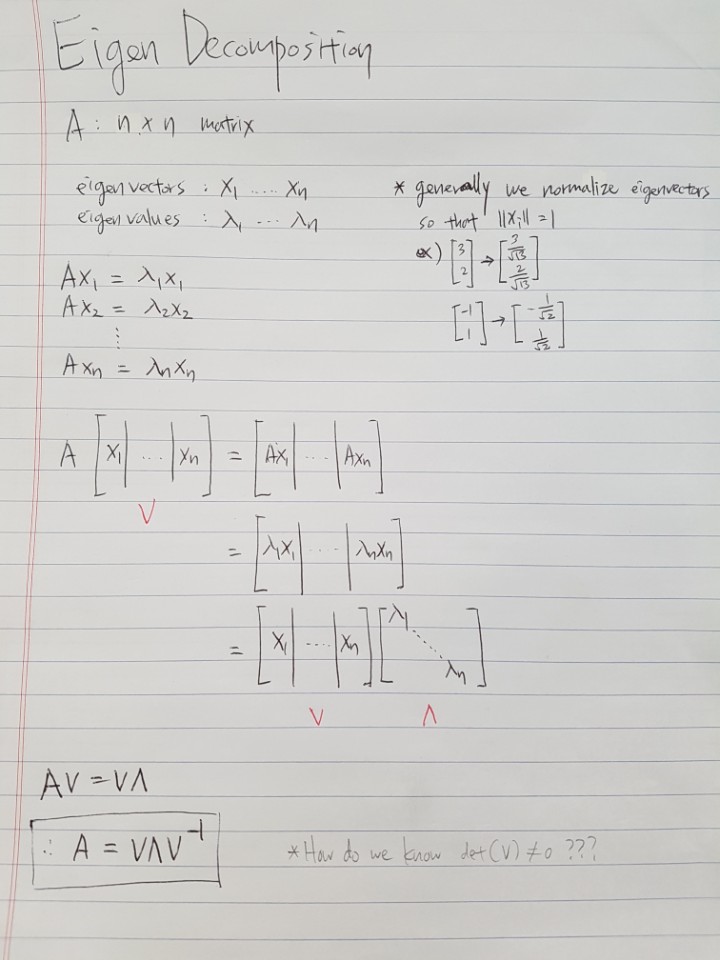 Eigen Decomposition
A : n × n matrix
eigenvectors : x₁ ..... xₙ
eigenvalues : λ₁ ... λₙ
* generally we normalize eigenvectors
so that ||xᵢ|| = 1
ex) [3 2] → [3/√13 2/√13]
[-1 1] → [-1/√2 1/√2]
Ax₁ = λ₁x₁
Ax₂ = λ₂x₂
⋮
Axₙ = λₙxₙ
A [x₁| ... |xₙ] = [Ax₁| ... |Axₙ]
V
= [λ₁x₁| ... |λₙxₙ]
= [x₁| .... |xₙ] [λ₁ ⋱ λₙ]
V Λ
AV = VΛ
∴ A = VΛV⁻¹
* How do we know det(V) ≠ 0 ???